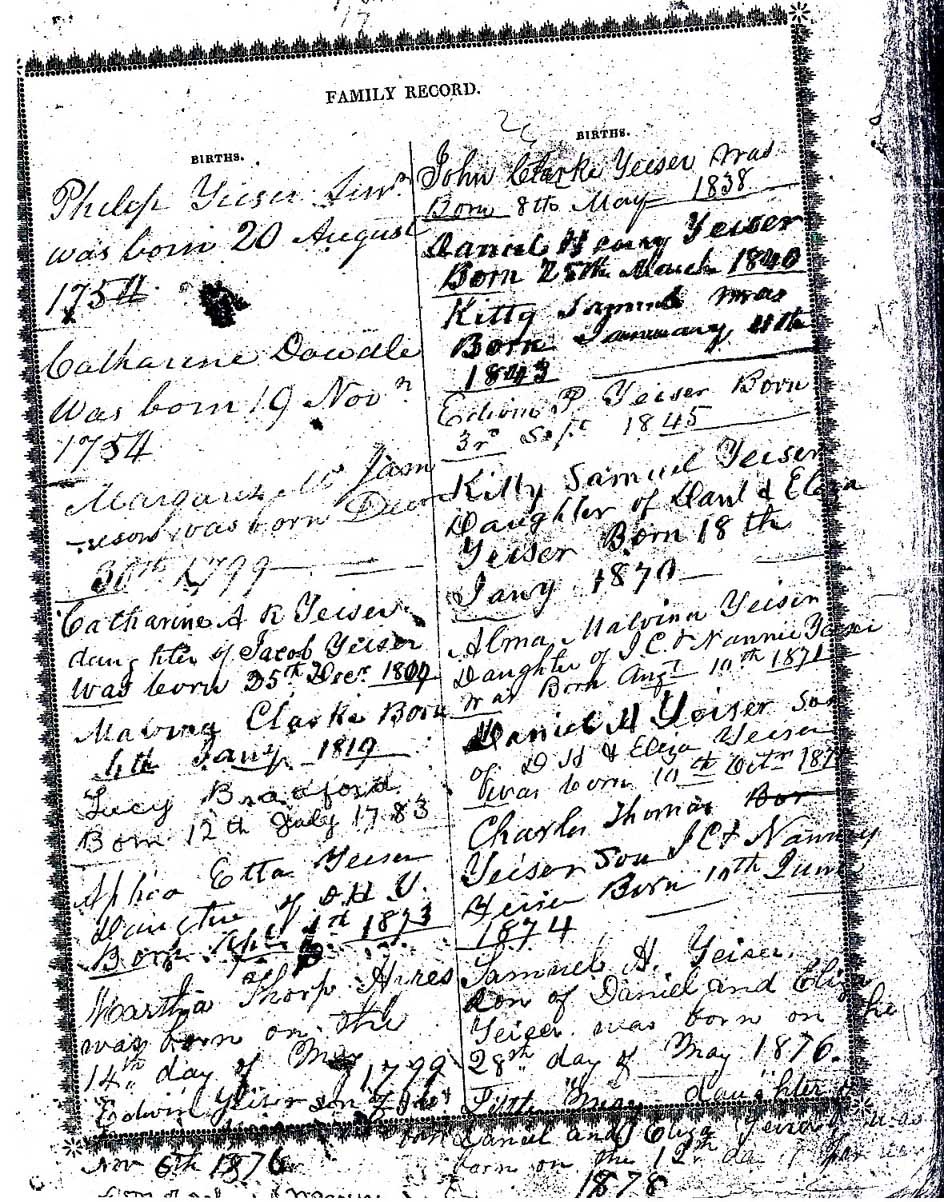 17
FAMILY RECORD.
BIRTHS.
Philip Yeiser Senr
was born 20 August
1754
Catharine Dowdle
Was born 19 Novr
1754
Margaret Jam
-ieson was born Decr
30th 1799
Catharine A R Yeiser
daughter of Jacob Yeiser
was born 25th Decr 1809
Malvina Clarke Born
4th Jany 1819
Lucy Bradford
Born 12th July 1783
Etta Yeiser
Daughter of D H Y.
Born 1st 1873
Martha Thorp Ayres
was born on the
14th day of May
1799
Edwin Yeiser son of
Nov 6th 1876
BIRTHS.
John Clarke Yeiser was
Born 8th May 1838
Daniel Henry Yeiser
Born 25th March 1840
Kitty Samuel was
Born January
1843
Edwin P Yeiser Born
3rd Sept 1845
Kitty Samuel Yeiser
Daughter of Danl & Eliza
Yeiser Born 18th
Jany 1870
Alma Malvina Yeiser
Daughter of J C & Nannie Yeiser
was Born Augt 10th 1871
Daniel H Yeiser Son
of D H & Eliza Yeiser
was born 10th Octr
Charles Thomas Bor
Yeiser Son J C & Nanny
Yeiser Born 10th June
1874
Samuel H. Yeiser.
son of Daniel and Eliza
Yeiser was born on the
28th day of May 1876.
May daughter
Daniel and Eliza Yeiser was
born on the 12th day
1878